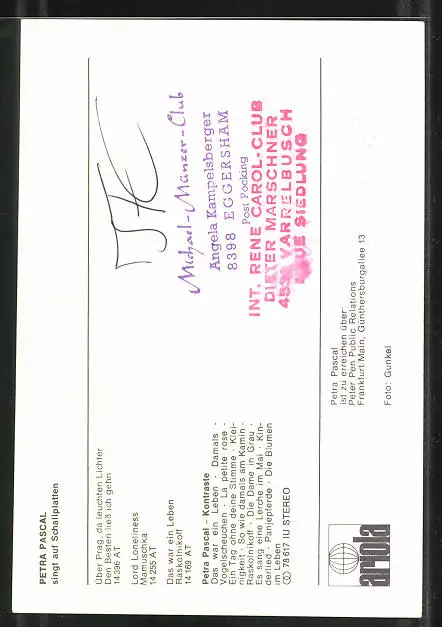 PETRA PASCAL
singt auf Schallplatten
Über Prag, da leuchten Lichter
Den Besten ließ ich gehn
14 396 AT
Lord Loneliness
Mamuschka
14 255 AT
Das war ein Leben
Raskolnikoff
14 169 AT
Petra Pascal – Kontraste
Das war ein Leben · Damals ·
Vogelscheuchen · La petite rose ·
Ein Tag ohne deine Stimme · Klei-
nigkeit · So wie damals am Kamin ·
Raskolnikoff · Die Dame in Grau ·
Es sang eine Lerche im Mai · Kin-
derlied · Panjepferde · Die Blumen
im Leben
78 617 IU STEREO
Michael-Münzer-Club
Angela Kampelsberger
8398 EGGERSHAM
Post Pocking
INT. RENE CAROL-CLUB
DIETER MARSCHNER
VARRELBUSCH
SIEDLUNG
Petra Pascal
ist zu erreichen über:
Peter Pen Public Relations
Frankfurt/Main, Günthersburgallee 13
Foto: Gunkel
ariola